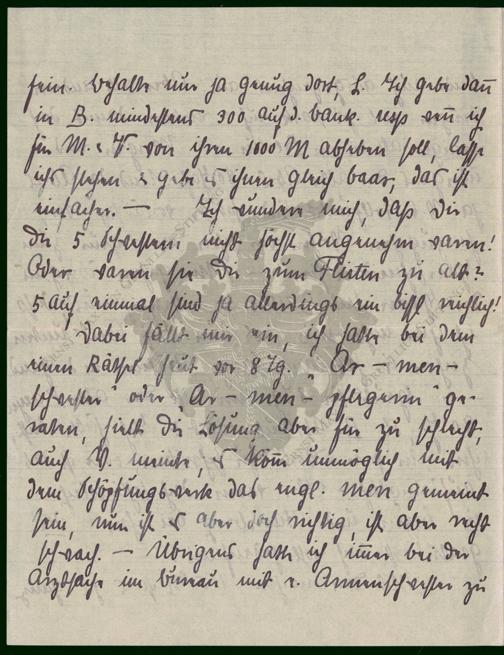 sein. Behalte nur ja genug dort, L. Ich gebe dan̄
in B. mindestens 300 auf d. bank. resp wen̄ ich
für M. & V. von ihren 1000 M abheben soll, lasse
ich's stehen & gebe es ihnen gleich baar, das ist
einfacher. — Ich wundere mich, daß Dir
die 5 Schwestern nicht höchst angenehm waren!
Oder waren sie Dir zum Flirten zu alt?
5 auf einmal sind ja allerdings ein bissl reichlich!
Dabei fällt mir ein, ich hatte bei dem
einen Räthsel heut vor 8 Tg. "Ar – men –
schwester" oder "Ar – men – pflegerin" ge-
raten, hielt die Lösung aber für zu schlecht,
auch V. meinte, es kön̄ unmöglich mit
dem Schöpfungswerk das engl. men gemeint
sein, nun ist es aber doch richtig, ist aber recht
schwach. — Übrigens hatte ich im̄er bei der
Arztsache im bureau mit e. Armenschwester zu